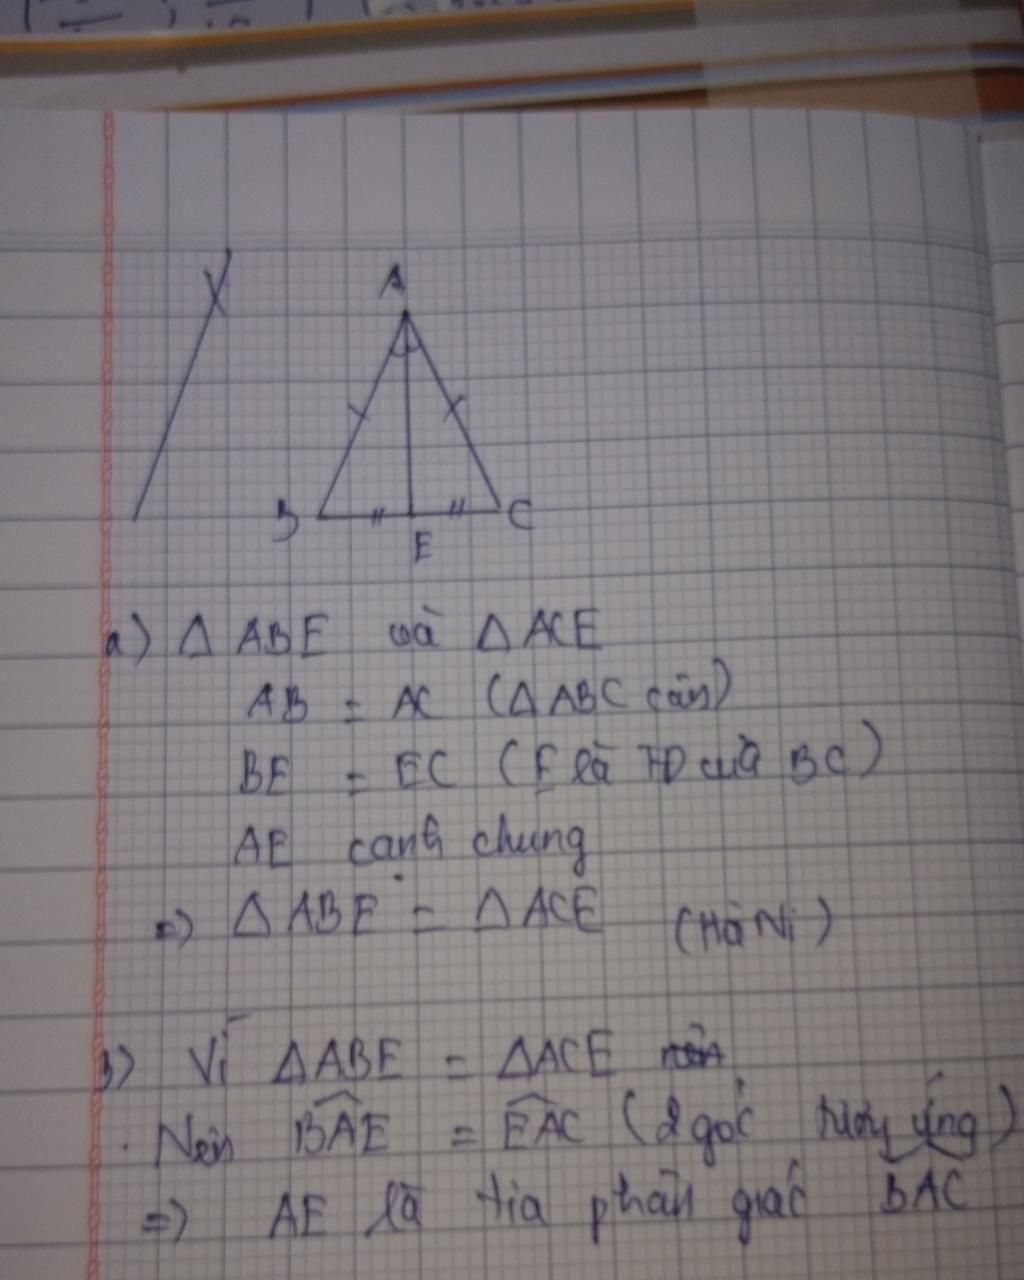 A
B
C
E
a) Δ ABE và Δ ACE
AB = AC (Δ ABC cân)
BE = EC (E là TĐ của BC)
AE cạnh chung
=> Δ ABE = Δ ACE
b) Vì ΔABE = ΔACE
Nên BAE = EAC (2 góc tương ứng)
=> AE là tia phân giác BAC